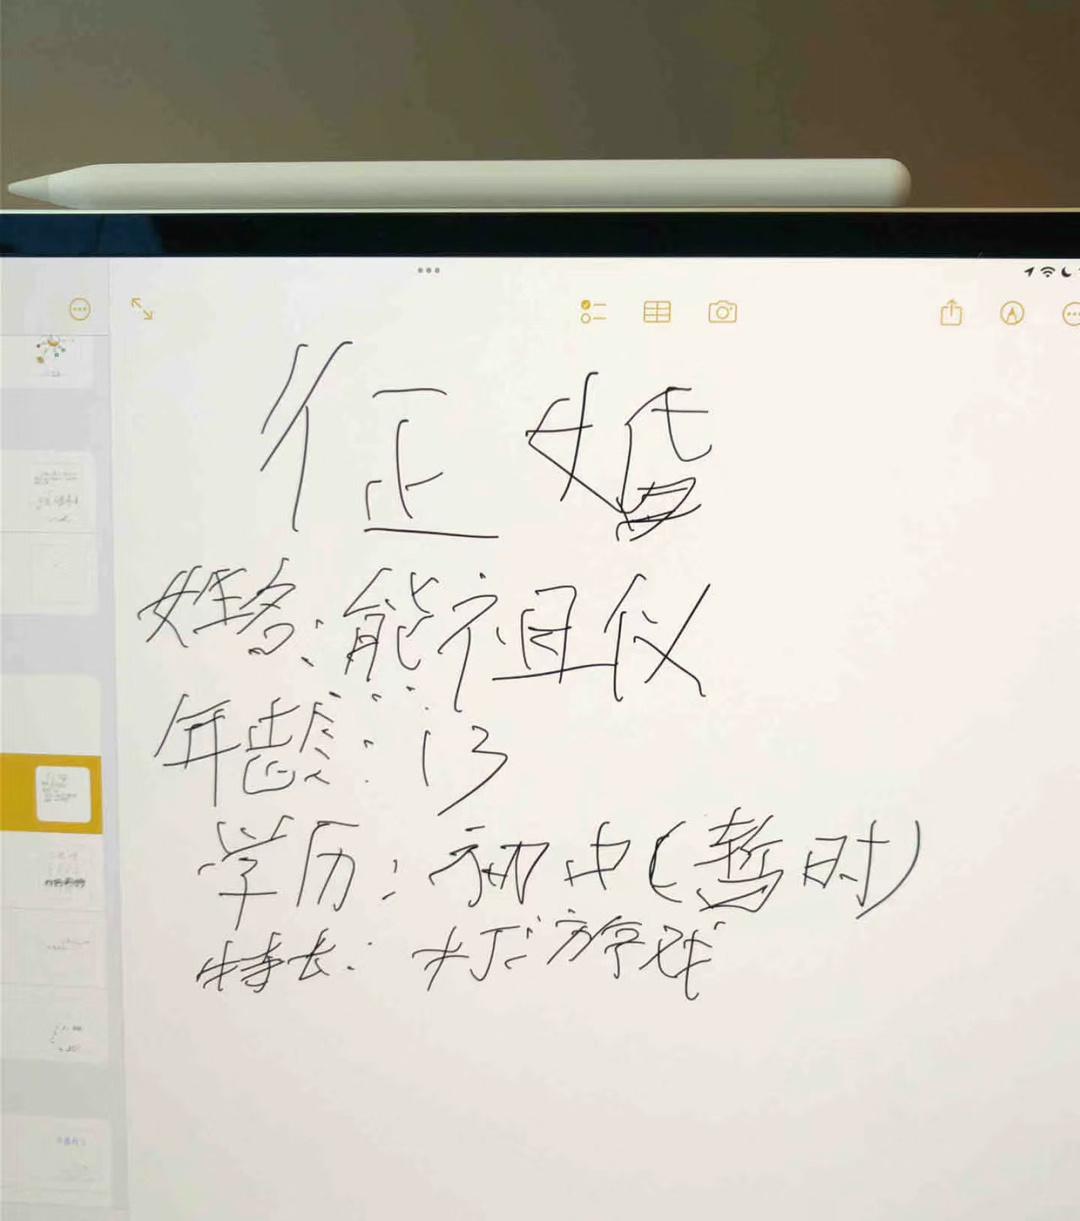 征婚
姓名:熊祖仪
年龄:13
学历:初中(暂时)
特长:打游戏